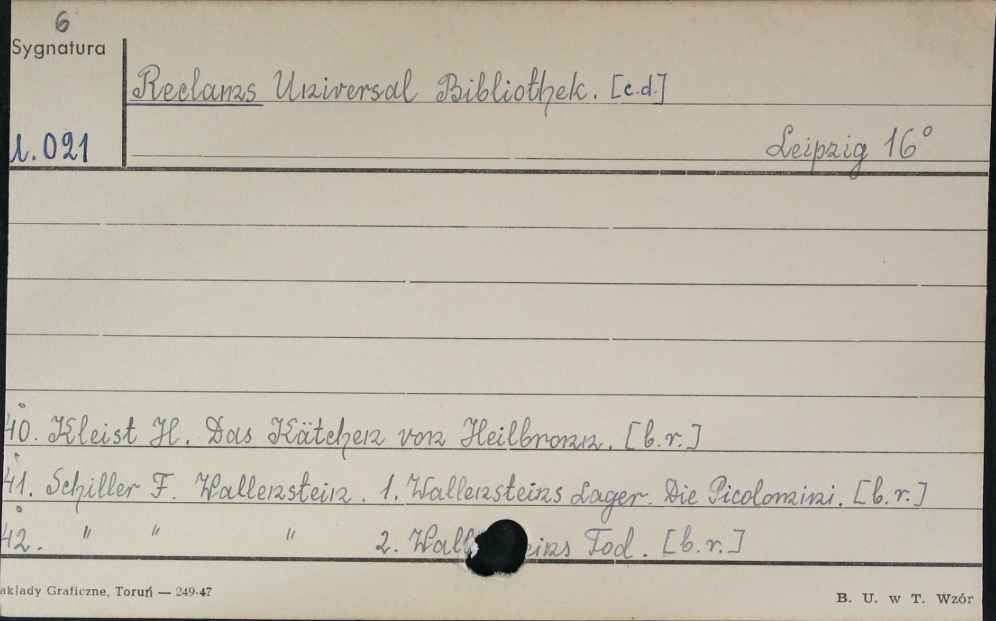 6
Sygnatura
Reclams Universal Bibliothek. [c.d.]
1.021
Leipzig 16°
40. Kleist H. Das Kätchen von Heilbronn. [b.r.]
41. Schiller F. Wallenstein. 1. Wallensteins Lager. Die Picolomini. [b.r.]
42. " " " 2. Wall eins Tod. [b.r.]
akłady Graficzne, Toruń — 249-47
B. U. w T. Wzór